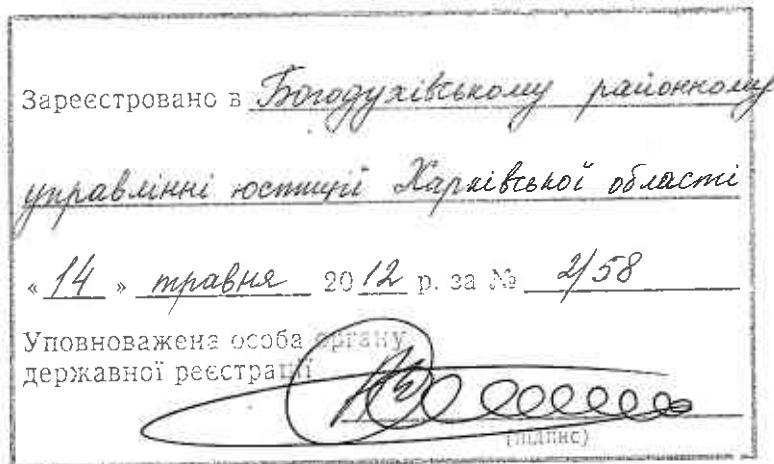 Зареєстровано в Богодухівському районному
управлінні юстиції Харківської області
« 14 » травня 2012 р. за № 2/58
Уповноважена особа органу
державної реєстрації
(підпис)